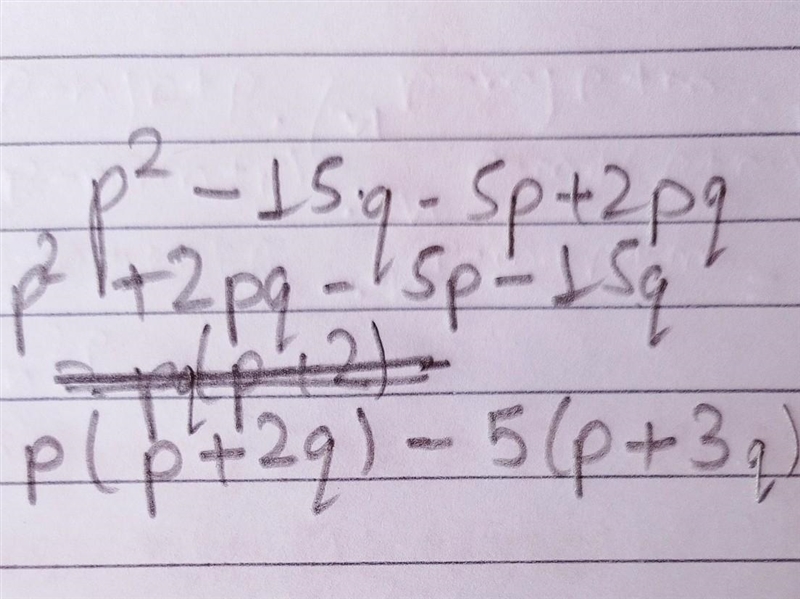 p² - 15q - 5p + 2pq
p² + 2pq - 5p - 15q
= pq(p+2) -
p(p+2q) - 5(p+3q)